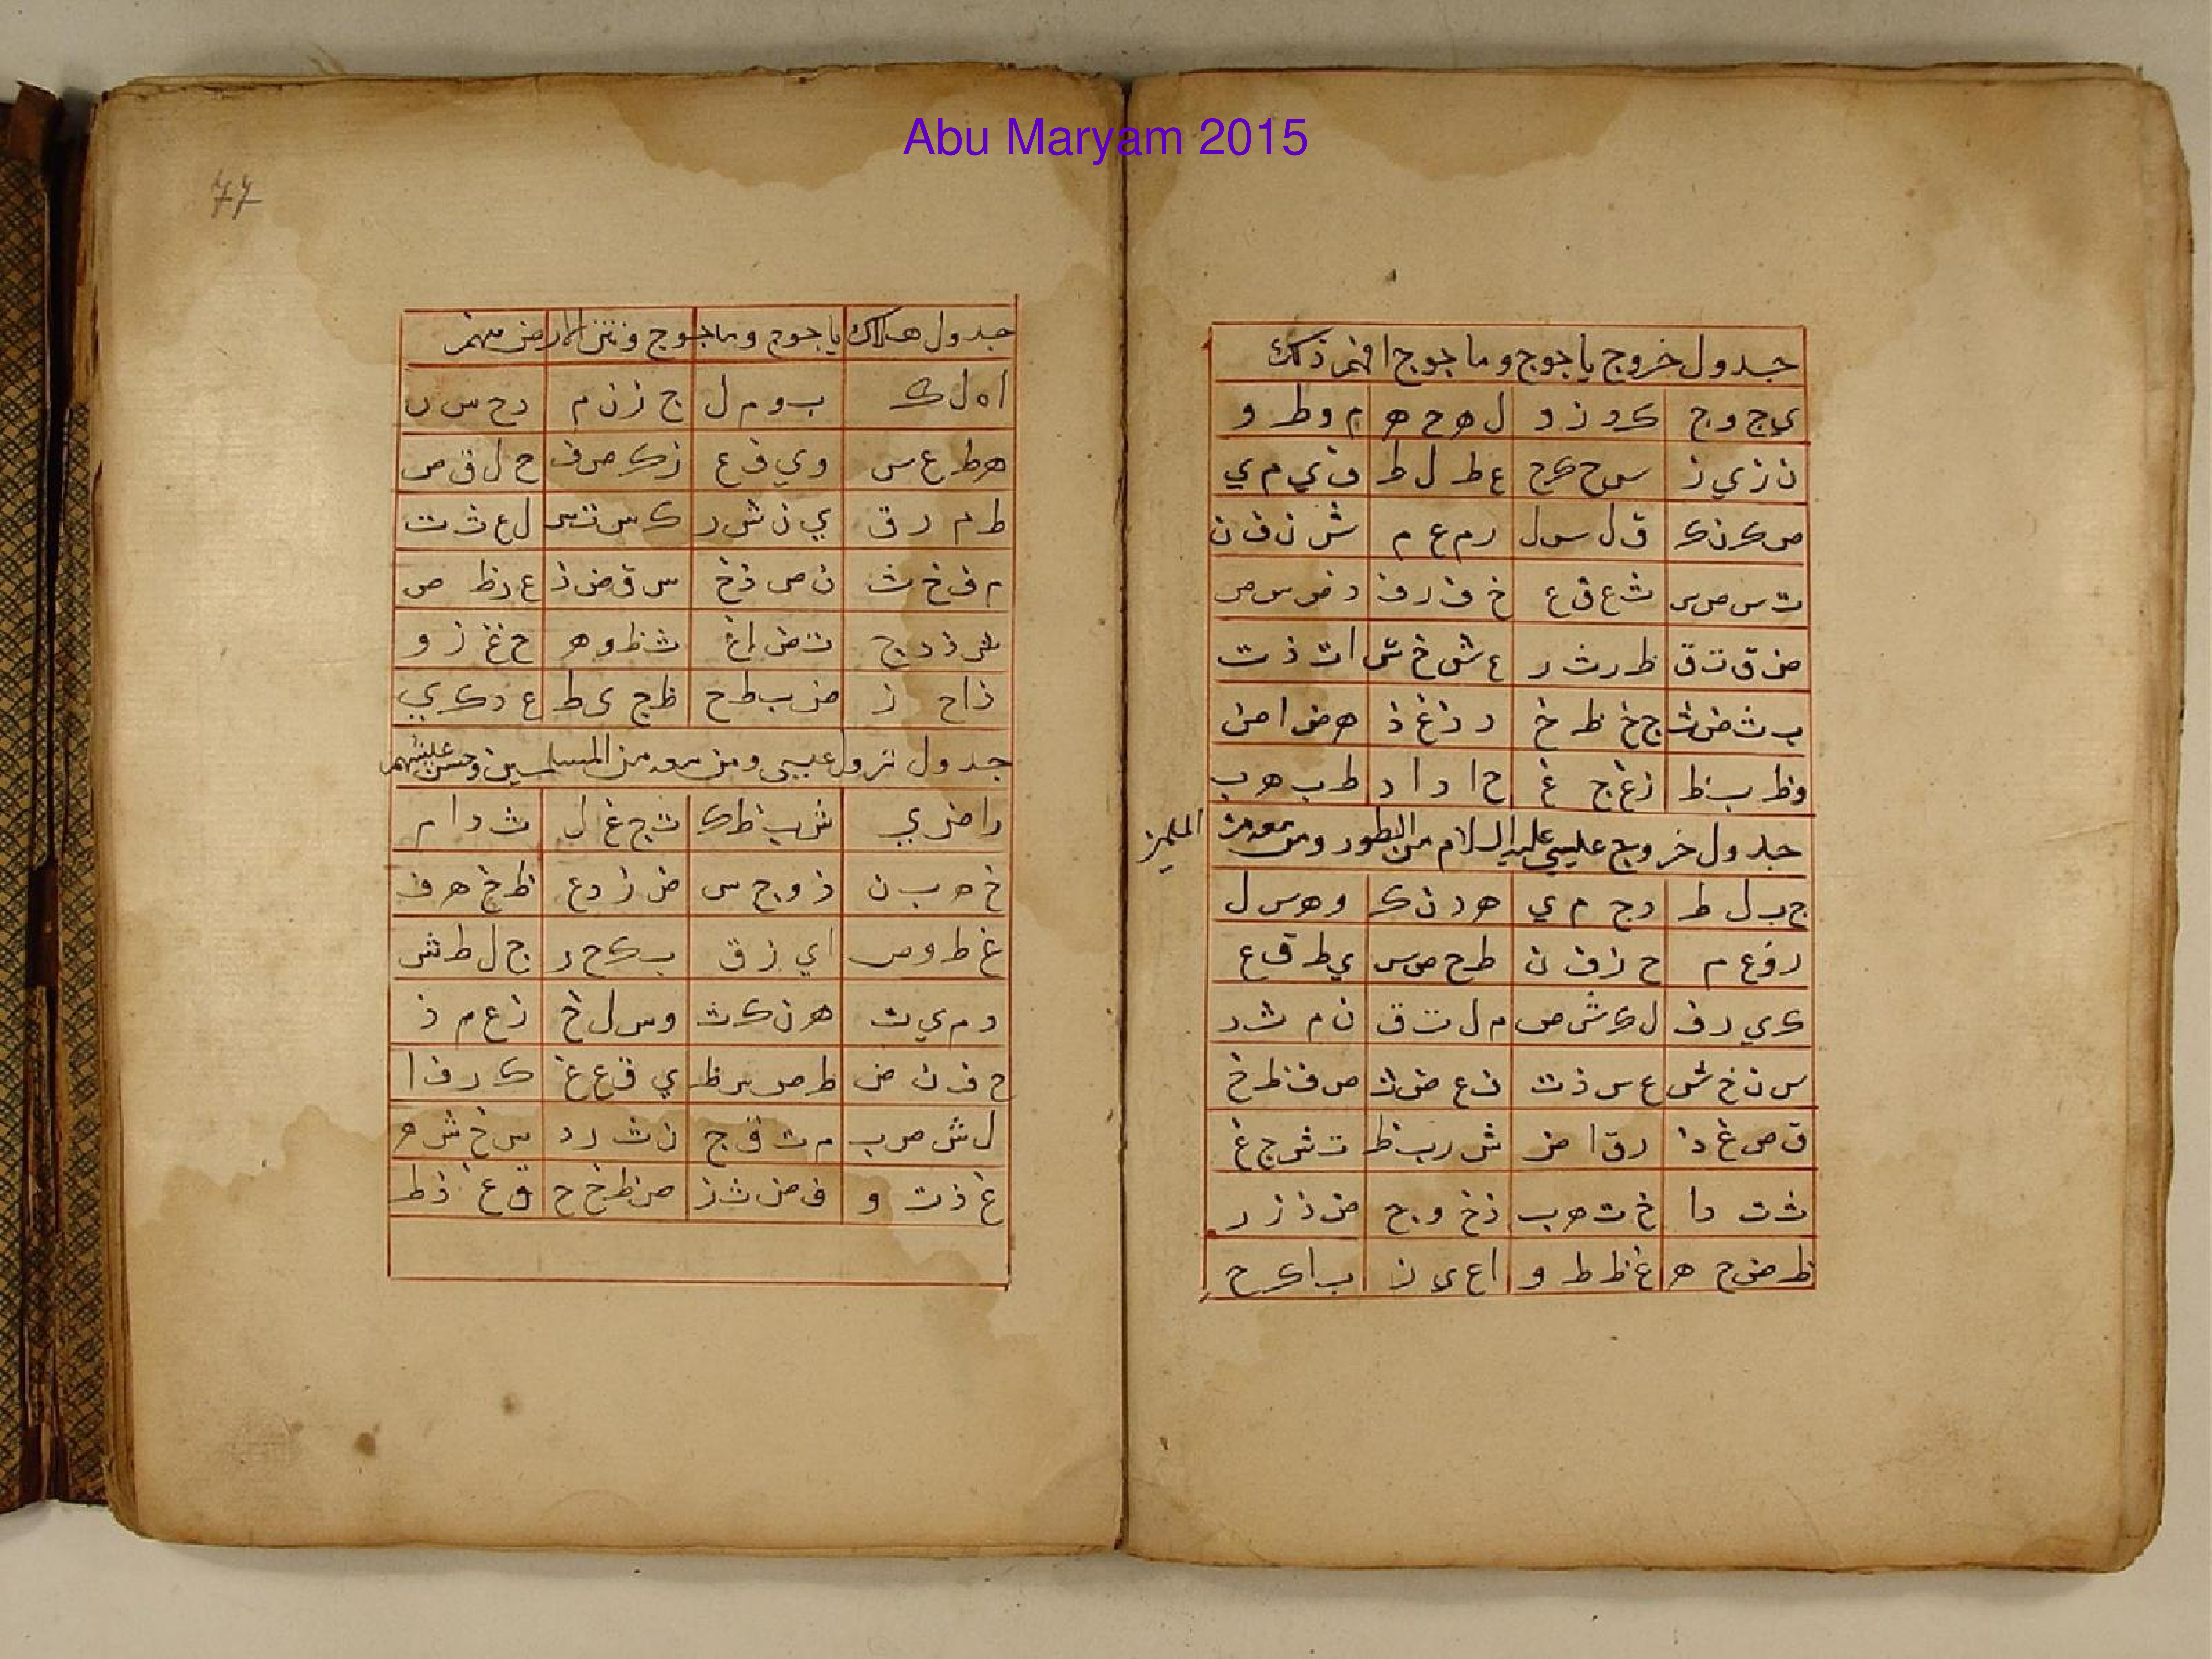 Abu Maryam 2015
جدول خروج ياجوج وماجوج افهم ذلك
ي ج و ج ك د ز د ل ه ح ه م و ط و
ن ز ي ز س ح ك ح ع ط ل ط ف ي م ي
ص ك ن ك ق ل س ل ر م ع م ش ن ف ن
ت س ص س ث ع ق ع خ ف ر ف ذ ص س ص
ض ق ت ق ظ ر ث ر غ ش خ ش ا ت ذ ت
ب ث ض ث ج خ ظ خ د ذ غ ذ ه ض ا ض
و ظ ب ظ ز غ ج غ ح ا د ا د ط ب ه ب
جدول خروج عليسي عليه السلام من الطور ومن معه من
ج ب ل ط د ج م ي ه د ن ك و ه س ل
ز و ع م ح ز ف ن ط ح ص س ي ط ق ع
ك ي ر ف ل ك ش ص م ل ت ق ن م ث ر
س ن خ ش ع س ذ ت ف ع ض ث ص ف ظ خ
ق ص غ ذ ر ق ا ض ش ر ب ظ ت ش ج غ
ث ت د ا خ ث ه ب ذ خ و ج ض ذ ز د
ظ ض ح ه غ ظ ط و ا غ ي ز ب ا ك ح
77
جدول هلاك ياجوج وماجوج ونتن الارض منهم
ا ه ل ك ب و م ل ج ز ن م د ح س ن
ه ط ع س و ي ف ع ز ك ص ف ح ل ق ص
ط م ر ق ي ن ش ر ك س ت ش ل ع ث ت
م ف خ ث ن ص ذ خ س ق ض ذ ع ر ظ ض
ش ذ د ج ت ض ا غ ث ظ و ه خ غ ز و
ذ ا ح ز ض ب ط ح ظ ج ي ط غ د ك ي
جدول نزول عيسى ومن معه من المسلمين وحسن عليشهم
ر ا ض ي ش ب ظ ك ت ج غ ل ث د ا م
خ ه ب ن ذ و ج س ض ز د ع ظ ح ه ف
غ ط و ص ا ي ز ق ب ك ح ر ج ل ط ش
د م ي ت ه ن ك ث و س ل خ ز ع م ذ
ح ف ن ض ط ص س ظ ي ق ع غ ك ر ف ا
ل ش ص ب م ت ق ج ن ث ر د س خ ش ه
ع ذ ت و ف ض ث ز ص ظ خ ح ق غ ذ ط